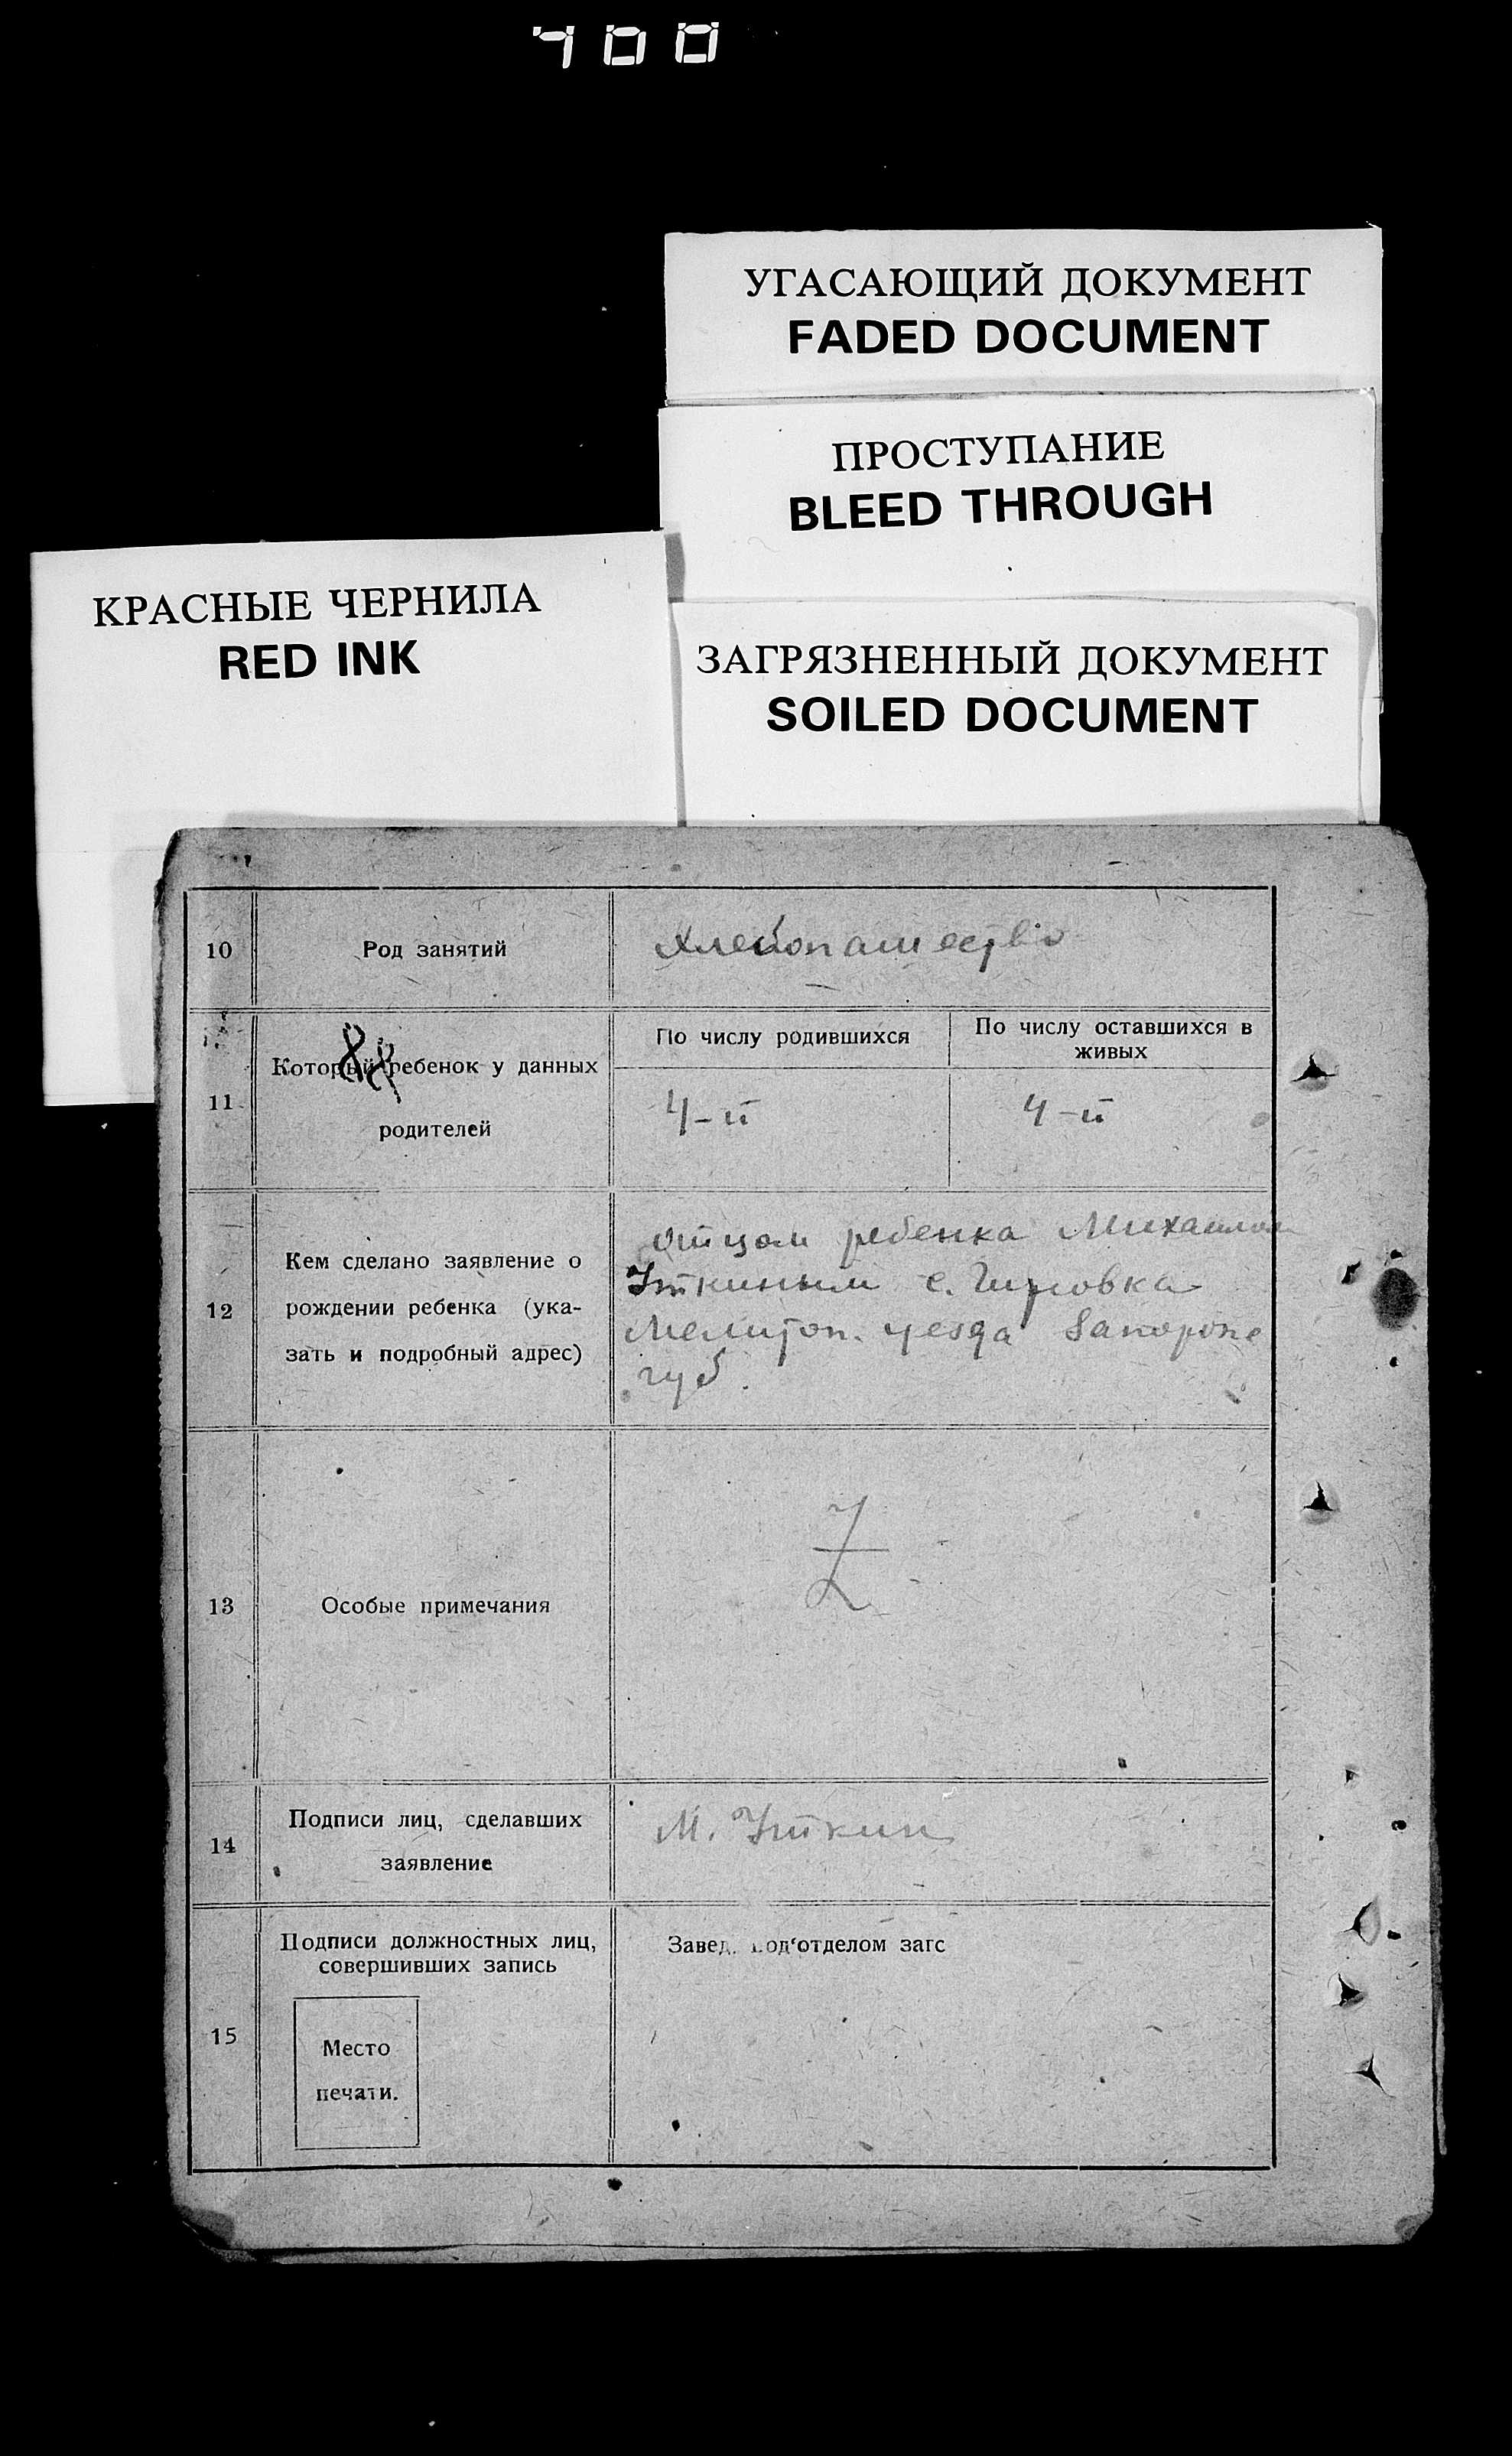 400
УГАСАЮЩИЙ ДОКУМЕНТ
FADED DOCUMENT
ПРОСТУПАНИЕ
BLEED THROUGH
КРАСНЫЕ ЧЕРНИЛА
RED INK
ЗАГРЯЗНЕННЫЙ ДОКУМЕНТ
SOILED DOCUMENT
10
Род занятий
Хлебопашество
11
88
Который ребенок у данных
родителей
По числу родившихся
4-й
По числу оставшихся в
живых
4-й
12
Кем сделано заявление о
рождении ребенка (ука-
зать и подробный адрес)
Отцом ребенка Михаилом
Уткиным с.
Мелитоп. уезда Запорож
губ.
13
Особые примечания
Z
14
Подписи лиц, сделавших
заявление
М. Уткин
15
Подписи должностных лиц,
совершивших запись
Место
печати.
Завед. под‘отделом загс